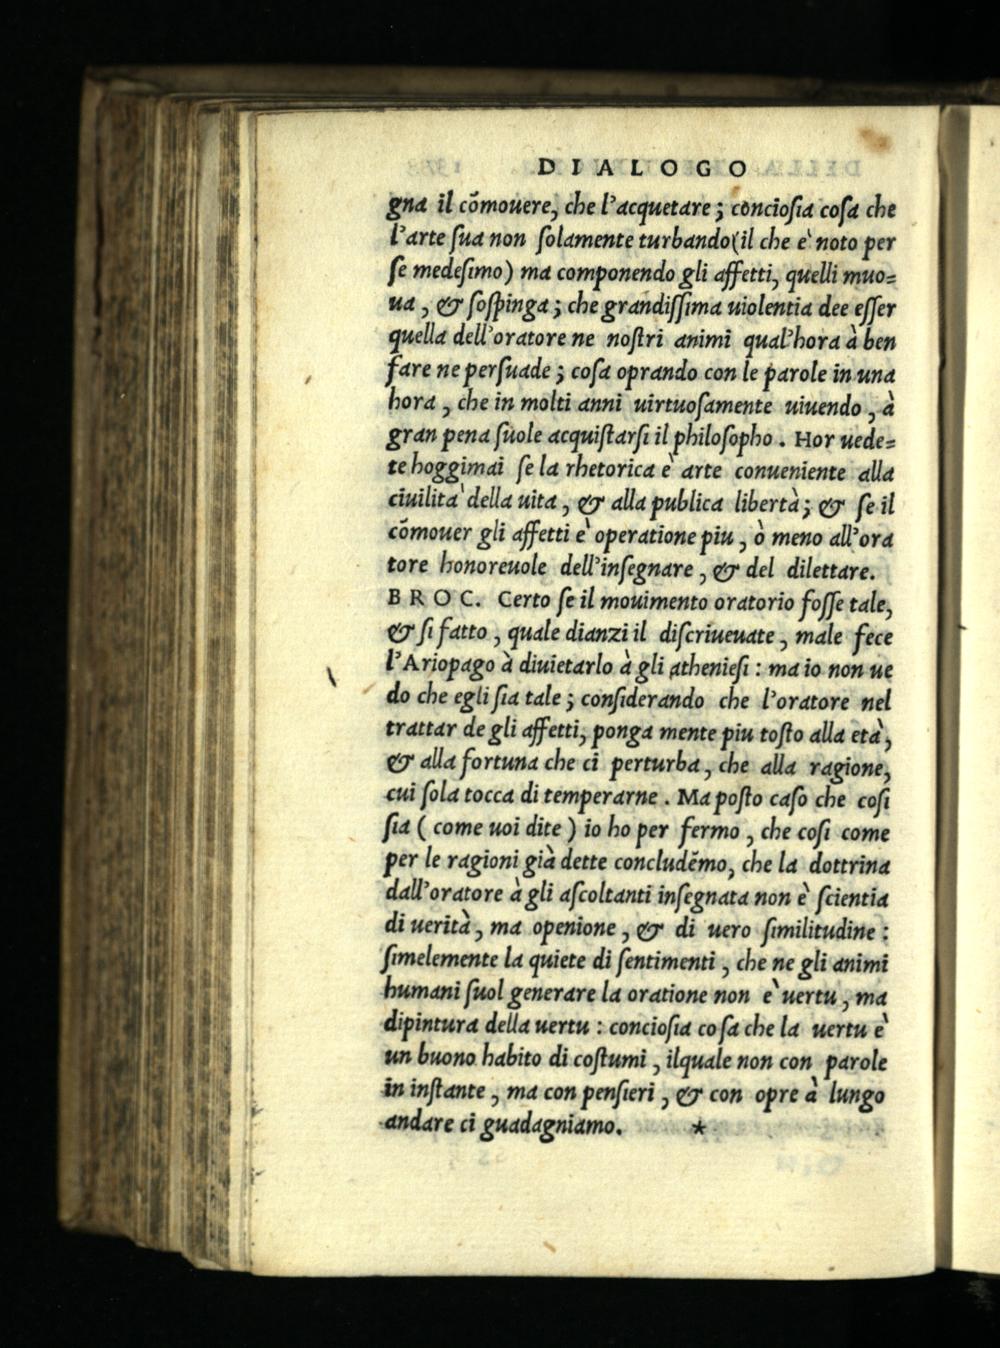 DIALOGO
gna il cõmouere, che l'acquetare; concioſia coſa che
l'arte ſua non ſolamente turbando (il che e' noto per
ſe medeſimo) ma componendo gli affetti, quelli muo=
ua, & ſoſpinga; che grandiſſima uiolentia dee eſſer
quella dell'oratore ne noſtri animi qual'hora à ben
fare ne perſuade; coſa oprando con le parole in una
hora, che in molti anni uirtuoſamente uiuendo, à
gran pena ſuole acquiſtarſi il philoſopho. Hor uede=
te hoggimai ſe la rhetorica e' arte conueniente alla
ciuilita' della uita, & alla publica libertà; & ſe il
cõmouer gli affetti e' operatione piu, ò meno all'ora
tore honoreuole dell'inſegnare, & del dilettare.
BROC. Certo ſe il mouimento oratorio foſſe tale,
& ſi fatto, quale dianzi il diſcriueuate, male fece
l'Ariopago à diuietarlo à gli athenieſi: ma io non ue
do che egli ſia tale; conſiderando che l'oratore nel
trattar de gli affetti, ponga mente piu toſto alla età,
& alla fortuna che ci perturba, che alla ragione,
cui ſola tocca di temperarne. Ma poſto caſo che coſi
ſia (come uoi dite) io ho per fermo, che coſi come
per le ragioni già dette concludẽmo, che la dottrina
dall'oratore à gli aſcoltanti inſegnata non è ſcientia
di uerità, ma openione, & di uero ſimilitudine:
ſimelemente la quiete di ſentimenti, che ne gli animi
humani ſuol generare la oratione non e' uertu, ma
dipintura della uertu: concioſia coſa che la uertu e'
un buono habito di coſtumi, ilquale non con parole
in inſtante, ma con penſieri, & con opre à lungo
andare ci guadagniamo. *